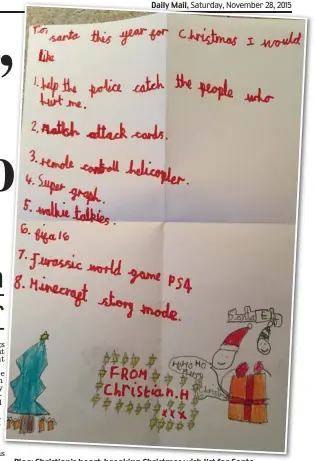 Daily Mail, Saturday, November 28, 2015
To: santa this year for Christmas I would
like
1. help the police catch the people who
hurt me.
2. match attack cards.
3. remote controll helicopter.
4. Super graph.
5. walkie talkies.
6. fifa 16
7. Jurassic world game PS4
8. Minecraft story mode.
Santa Elf
HoHo Ho
Merry
FROM
Christian.H
xxx